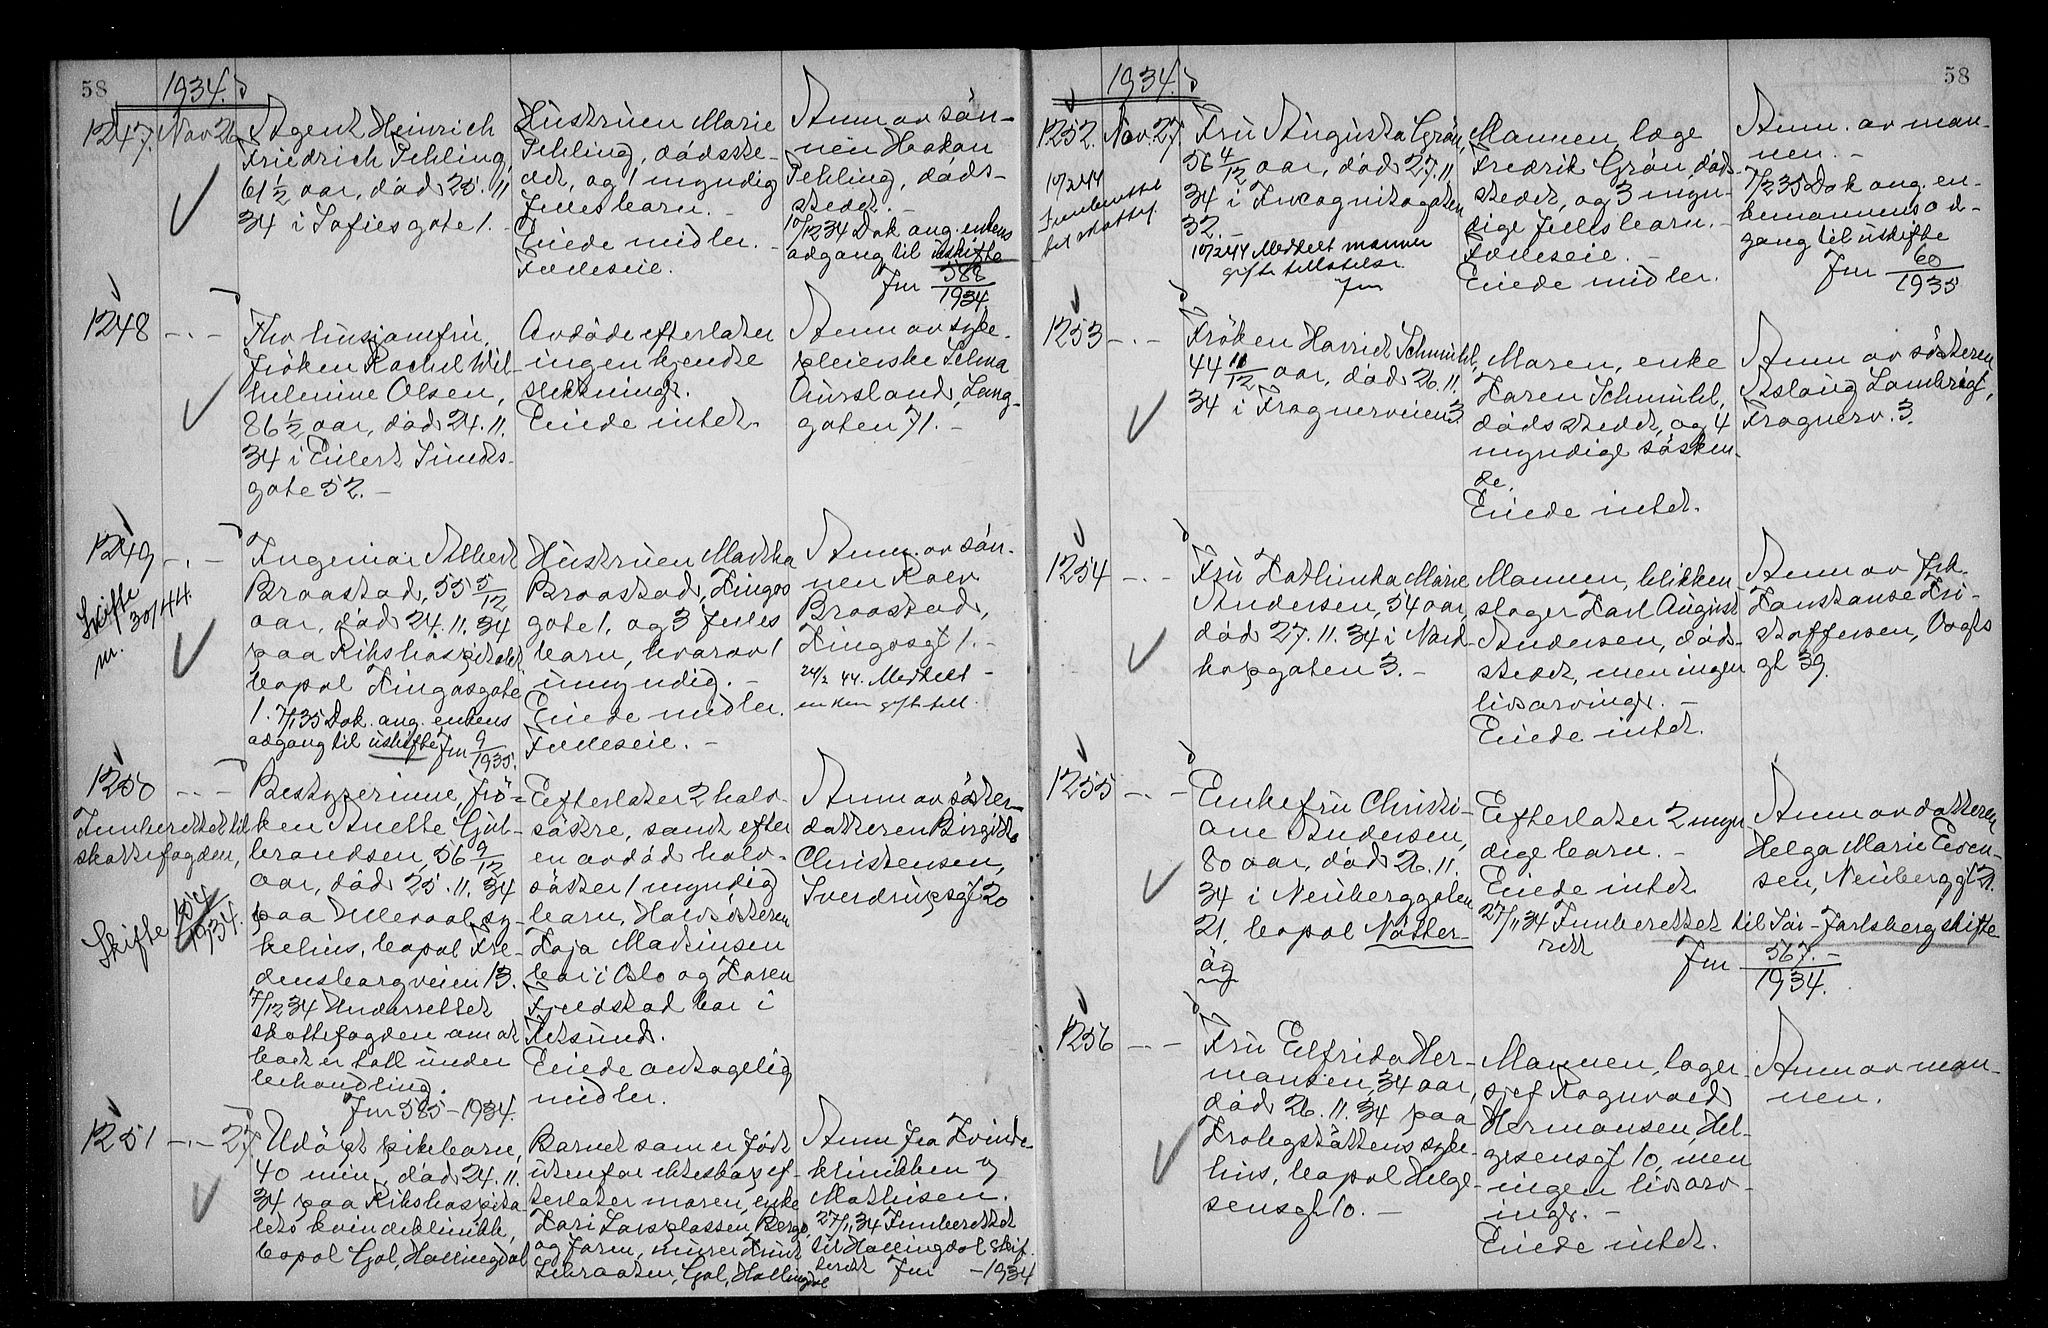 58
1934.
1247. Nov 26
Agent Heinrich
Friedrich Pehling,
61 1/2 aar, död 25.11.
34 i Sofiesgate 1. -
Hustruen Marie
Pehling, dödsste-
det, og 1 myndig
felles barn. -
Eiede midler. -
Felleseie.
Anm av sön-
nen Haakon
Pehling, döds-
stedet. -
10/12 34 Dok ang. enkens
adgang til uskifte
Jnr 588/1934.
1248 -.-
Fhv husjomfru,
fröken Rachel Wil-
helmine Olsen,
86 1/2 aar, död 24.11.
34 i Eilert Sundts-
gate 52. -
Avdöde efterlater
ingen kjendte
slektninger.
Eiede intet.
Anm av syke-
pleierske Selma
Aursland, Lang-
gaten 71. -
1249 -.-
Skifte
30/ 44.
Ingeniör Albert
Braastad, 55 5/12
aar, död 24.11.34
paa Rikshospitalet
bopel Kingosgate
1. 7/1 35 Dok. ang. enkens
adgang til uskifte Jnr 9/1935.
Hustruen Martha
Braastad, Kingos
gate 1, og 3 felles
barn, hvorav 1
umyndig. -
Eiede midler.
Felleseie. -
Anm. av sön-
nen Roar
Braastad,
Kingosgt 1. -
24/2 44. Meddelt
enken gift. till.
1250 -.-
Innberettet til
skattefogden,
Skifte 104/1934.
Bestyrerinne, frö-
ken Anette Gul-
brandsen, 56 9/12
aar, död 25.11.34
paa Ulleval sy-
kehus, bopel Fre-
densborgveien 13.
7/12 34 Underrettet
skattefogden om at
boet er tatt under
behandling.
Jnr 585-1934.
Efterlater 2 halv-
söstre, samt efter
en avdöd halv-
söster 1 myndig
barn, Halvsösteren
Kaja Martinsen
bor i Oslo og Karen
Fredstad bor i
Fetsund.
Eiede antagelig
midler.
Anm av söster-
datteren Birgitte
Christensen,
Sverdrupsgt 20
1251 -.- 27.
Udöpt pikebarn,
40 min, död 24.11.
34 paa Rikshospita-
lets kvindeklinikk,
bopel Gol, Hallingdal
Barnet som er födt
utenfor ekteskap ef-
terlater moren, enke
Kari Larsplassen, Bergo,
og faren, murer Knut
, Gol, Hallingdal
Anm fra Kvinde-
klinikken v
Mathisen.
27/11 34 Innberettet
til Hallingdal skif-
terett Jnr -1934
58
1934.
1252. Nov. 27.
10/2 44
Innberettet
til skattef.
Fru Augusta Grön,
56 4/12 aar, död 27.11.
34 i Incognitogaten
32. -
10/2 44 Meddelt mannen
gifte tillatelse
Jnr
Mannen, læge
Fredrik Grön, döds-
stedet, og 3 myn-
dige felles barn. -
Felleseie. -
Eiede midler.
Anm. av man-
nen. -
7/2 35 Dok ang. en-
kemannens ad-
gang til uskifte
Jnr 60/1935
1253 -.-
Fröken Harriet Schmühl,
44 11/12 aar, död 26.11.
34 i Frognerveien 3.
Moren, enke
Karen Schmühl,
dödsstedet, og 4
myndige sösken-
de.
Eiede intet.
Anm av sösteren
Aslaug Lambrigt,
Frognerv. 3.
1254 -.-
Fru Kathinka Marie
Andersen, 54 aar,
död 27.11.34 i Nord-
kapgaten 3. -
Mannen, blikken
slager Karl August
Andersen, döds-
stedet, men ingen
livsarvinger. -
Eiede intet.
Anm av frk.
Konstanse Kri-
stoffersen, Vogts
gt 39.
1255 -.-
Enkefru Christi-
ane Andersen,
80 aar, död 26.11.
34 i Neuberggaten
21, bopel Nötter-
öy
Efterlater 2 myn
dige barn. -
Eiede intet
27/11 34 Innberettet til Sör-Jarlsberg skifte
rett Jnr 567/1934.
Anm av datteren
Helga Marie Even-
sen, Neuberggt 21.
1256 -.-
Fru Elfrida Her-
mansen, 34 aar,
död 26.11.34 paa
Krohgstöttens syke-
hus, bopel Helge-
sensgt 10. -
Mannen, lager
sjef Ragnvald
Hermansen, Hel-
gesensgt 10, men
ingen livsarv-
inger. -
Eiede intet.
Anm av man-
nen.